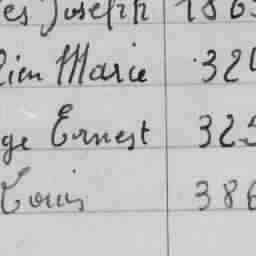 es Joseph 1863
lien Marie 324
ge Ernest 325
Louis 386